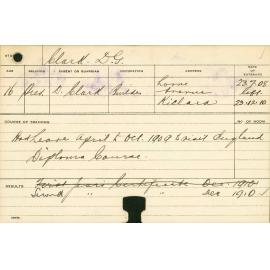 Clark. D. G.
AGE RELIGION PARENT OR GUARDIAN OCCUPATION ADDRESS DATE OF ENTRANCE
16 Pres D. Clark Builder Lorne 23.7.08
Avenue
Kildare 23.12.10
COURSE OF TRAINING NO. OF ROOM
Had Leave April to Oct. 1909 to visit England
Diploma Course.
RESULTS First Year Certificate Dec. 1910
Second " " Dec 1910
DATE